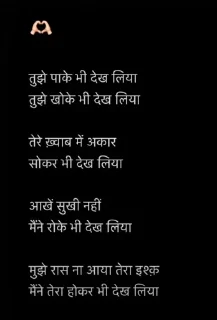 तुझे पाके भी देख लिया
तुझे खोके भी देख लिया
तेरे ख़्वाब में अकार
सोकर भी देख लिया
आखें सुखी नहीं
मैंने रोके भी देख लिया
मुझे रास ना आया तेरा इश्क़
मैंने तेरा होकर भी देख लिया